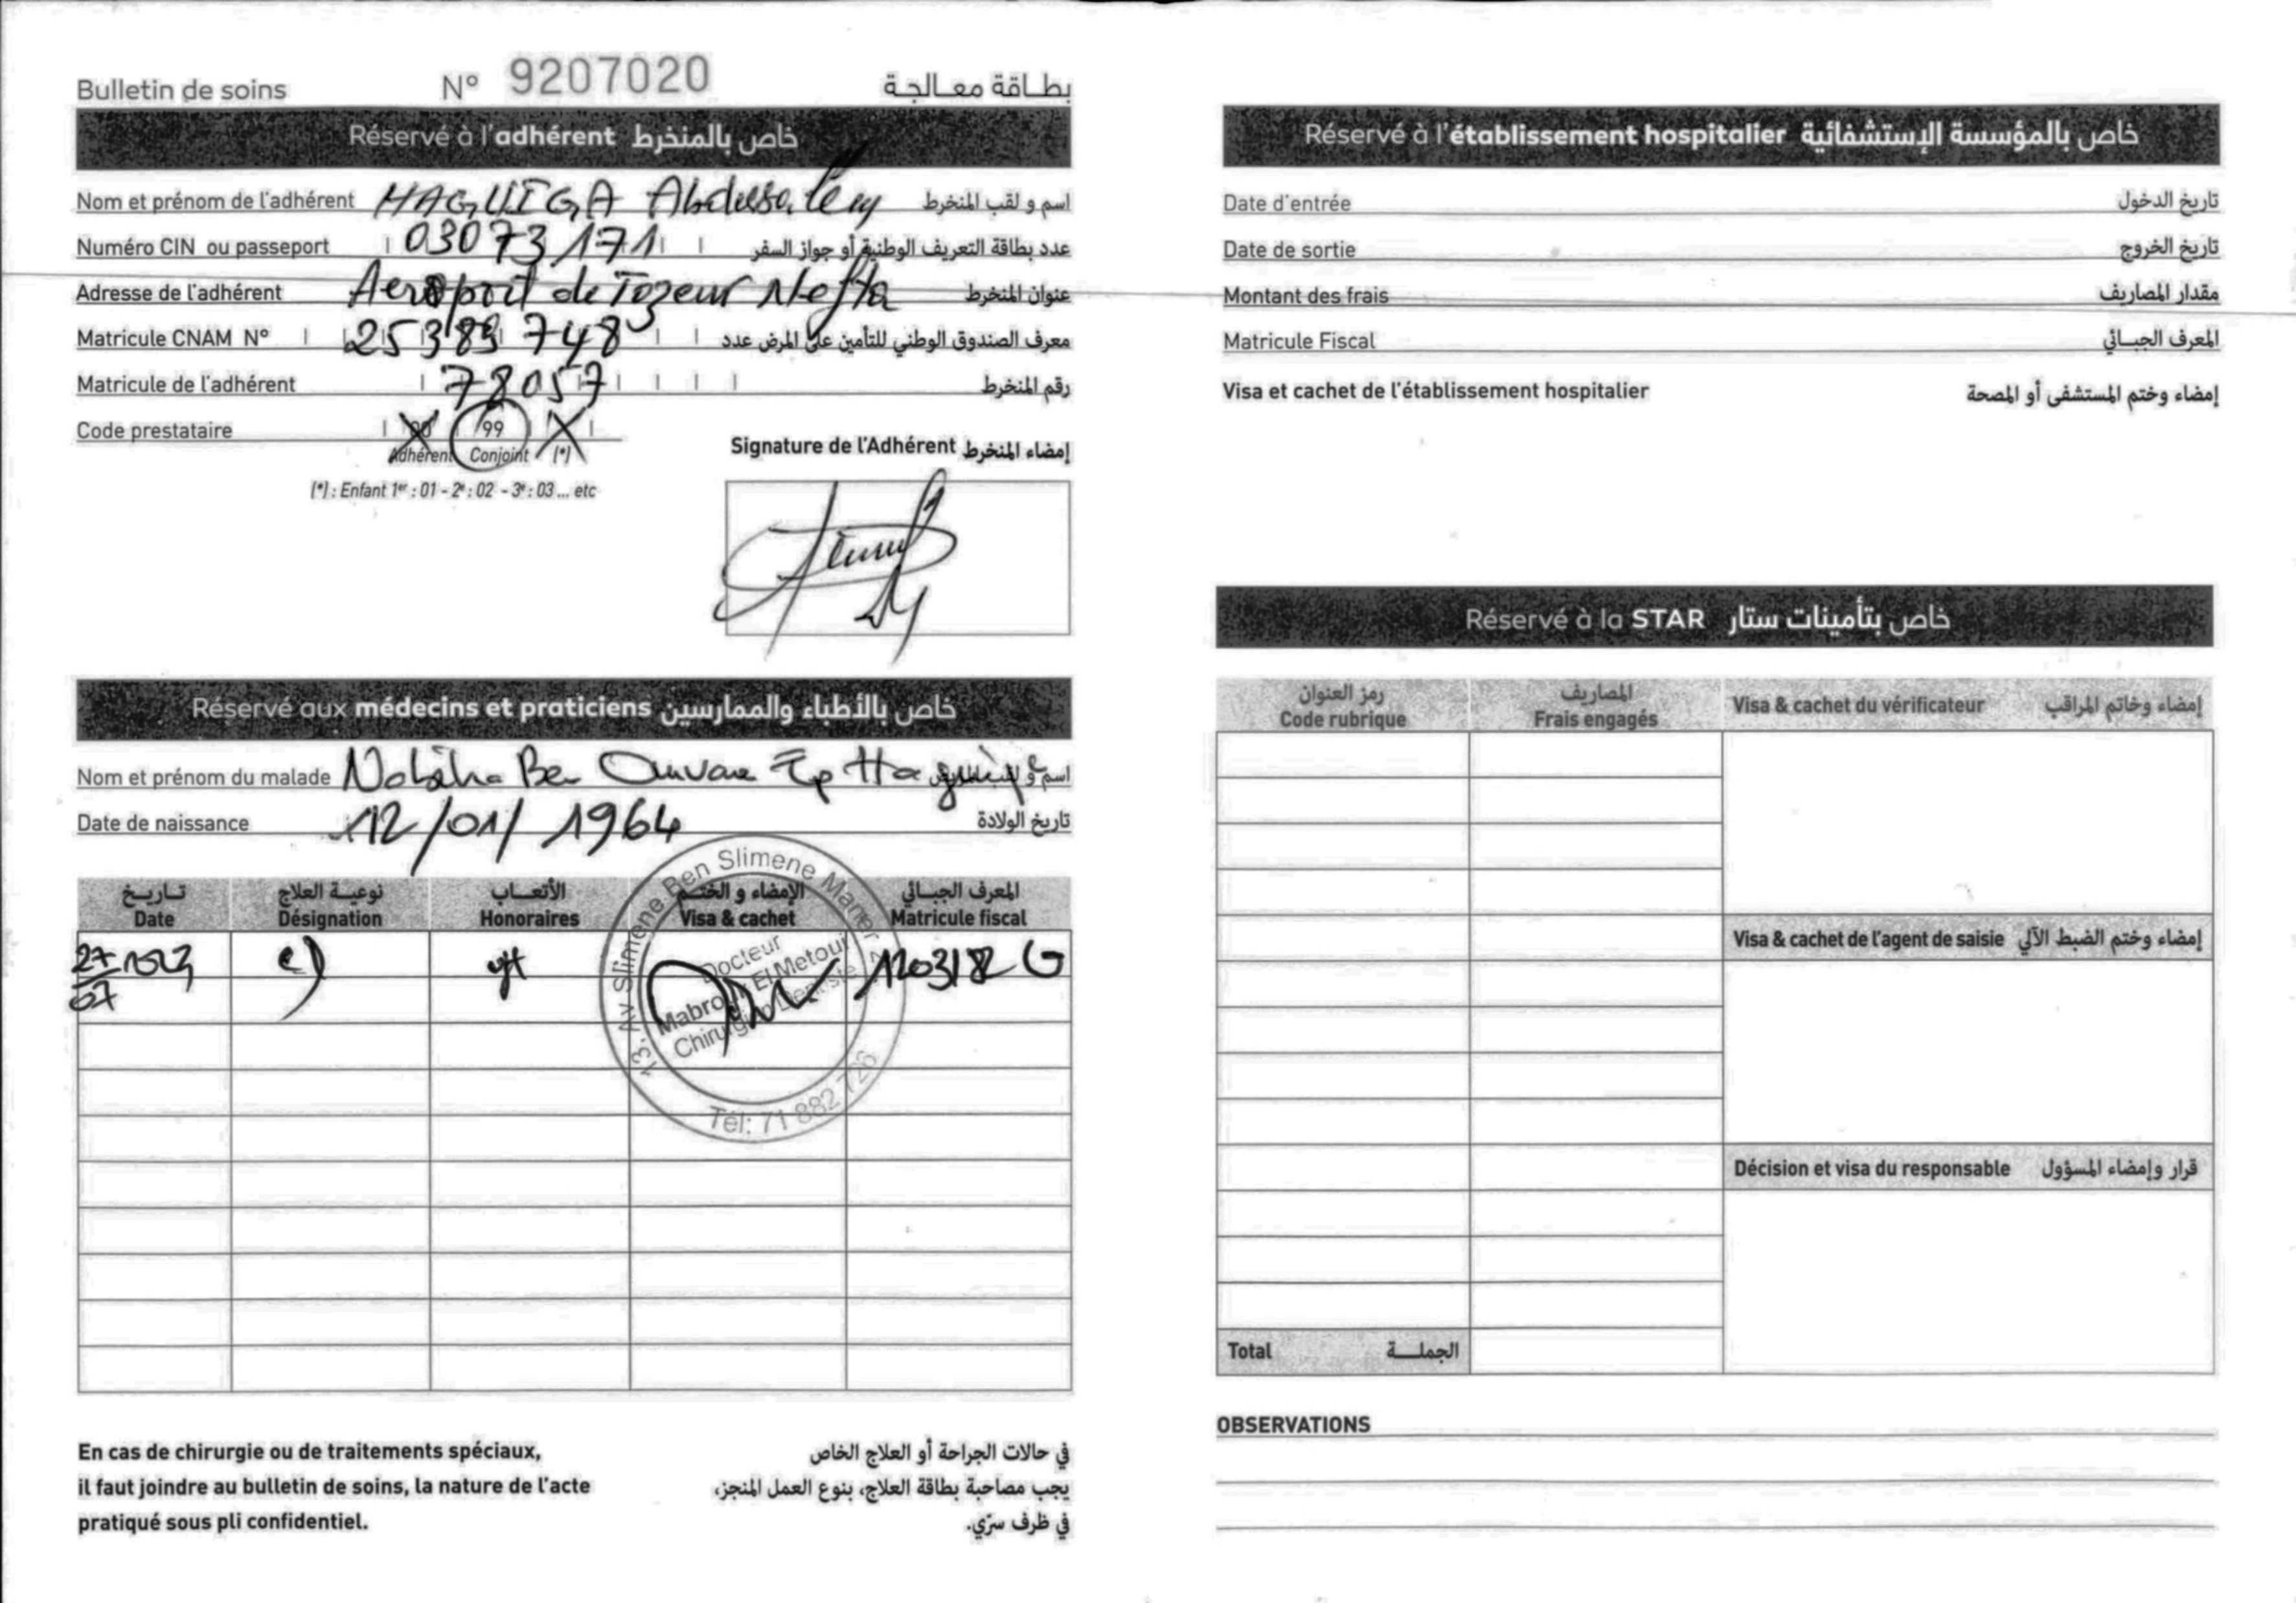 Bulletin de soins N° 9207020 بطاقة معالجة
Réservé à l'adhérent خاص بالمنخرط
Nom et prénom de l'adhérent HAGUIGA Abdessalem اسم و لقب المنخرط
Numéro CIN ou passeport 03073171 عدد بطاقة التعريف الوطنية أو جواز السفر
Adresse de l'adhérent Aeroport de Tozeur Nefta عنوان المنخرط
Matricule CNAM N° 25389748 معرف الصندوق الوطني للتأمين على المرض عدد
Matricule de l'adhérent 78057 رقم المنخرط
Code prestataire 00 99
Adhérent Conjoint (*)
(*) : Enfant 1er : 01 - 2e : 02 - 3e : 03 ... etc
Signature de l'Adhérent إمضاء المنخرط
Réservé aux médecins et praticiens خاص بالأطباء والممارسين
Nom et prénom du malade Nabiha Ben Ep Haguiga
Date de naissance 12/01/1964 تاريخ الولادة
تاريخ نوعية العلاج الأتعاب الإمضاء و الختم المعرف الجبائي
Date Désignation Honoraires Visa & cachet Matricule fiscal
27 07
13, Av Slimene Ben Slimene Manar 2
Docteur
Mabrouk El Metoui
Chirurgien Dentiste
Tél: 71 882 726
En cas de chirurgie ou de traitements spéciaux,
il faut joindre au bulletin de soins, la nature de l'acte
pratiqué sous pli confidentiel.
في حالات الجراحة أو العلاج الخاص
يجب مصاحبة بطاقة العلاج، بنوع العمل المنجز،
في ظرف سرّي.
Réservé à l'établissement hospitalier خاص بالمؤسسة الإستشفائية
Date d'entrée تاريخ الدخول
Date de sortie تاريخ الخروج
Montant des frais مقدار المصاريف
Matricule Fiscal المعرف الجبائي
Visa et cachet de l'établissement hospitalier إمضاء وختم المستشفى أو المصحة
Réservé à la STAR خاص بتأمينات ستار
رمز العنوان المصاريف
Code rubrique Frais engagés Visa & cachet du vérificateur إمضاء وخاتم المراقب
Visa & cachet de l'agent de saisie إمضاء وختم الضبط الآلي
Décision et visa du responsable قرار وإمضاء المسؤول
Total الجملة
OBSERVATIONS